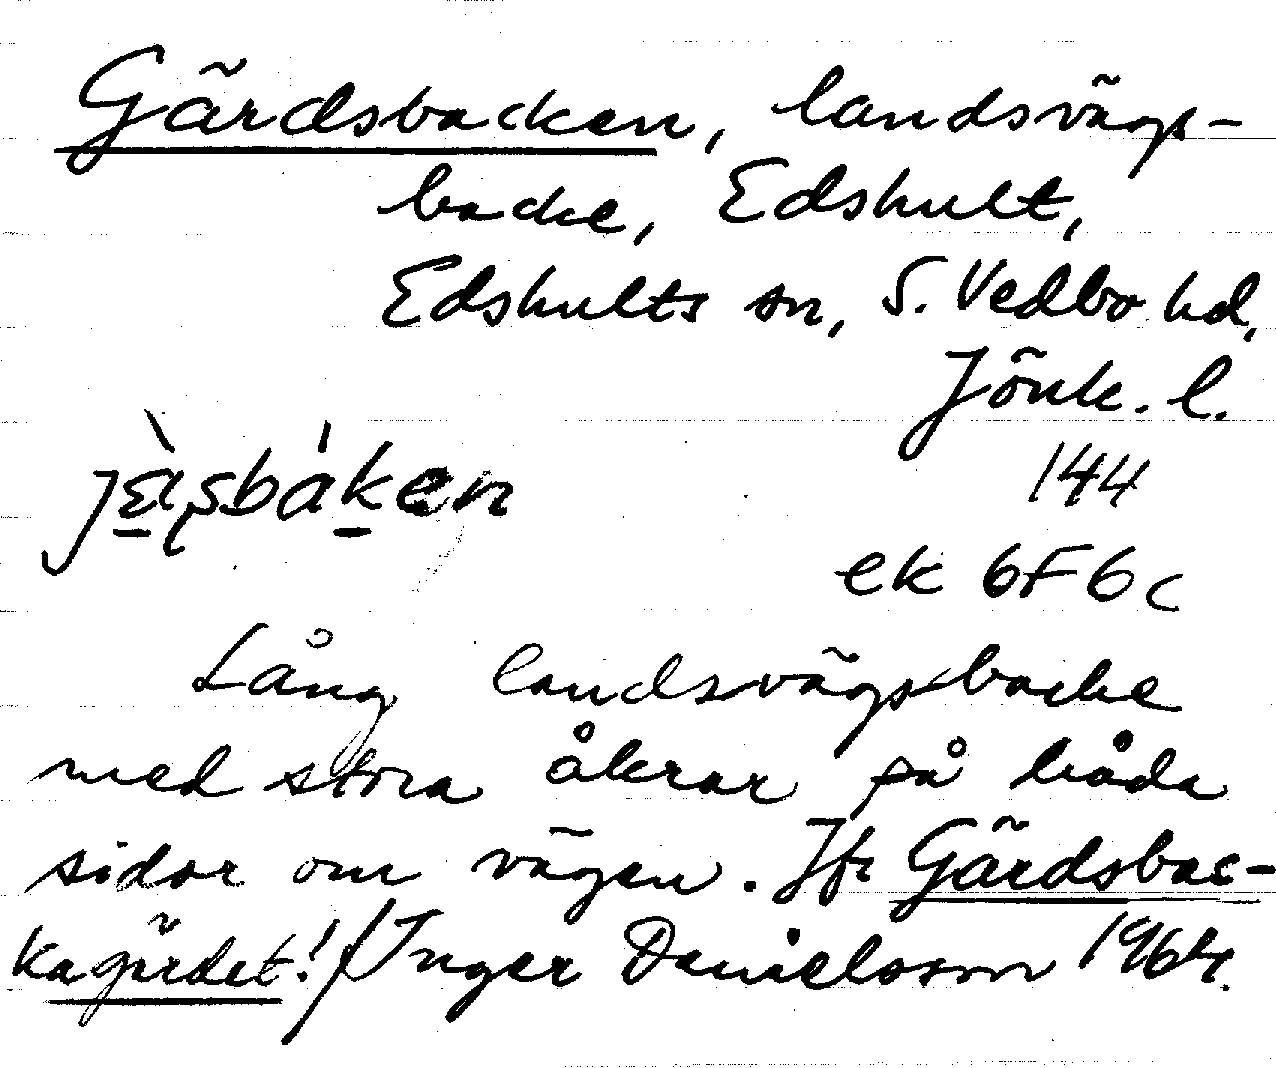 Gärdsbacken, landsvägs-
backe, Edshult,
Edshults sn, S. Vedbo hd,
Jönk. l.
jɛ̀ꞩsbáken
144
ek 6F6c
Lång landsvägsbacke
med stora åkrar på båda
sidor om vägen. Jfr Gärdsbac-
kagärdet! / Inger Danielsson 1964.